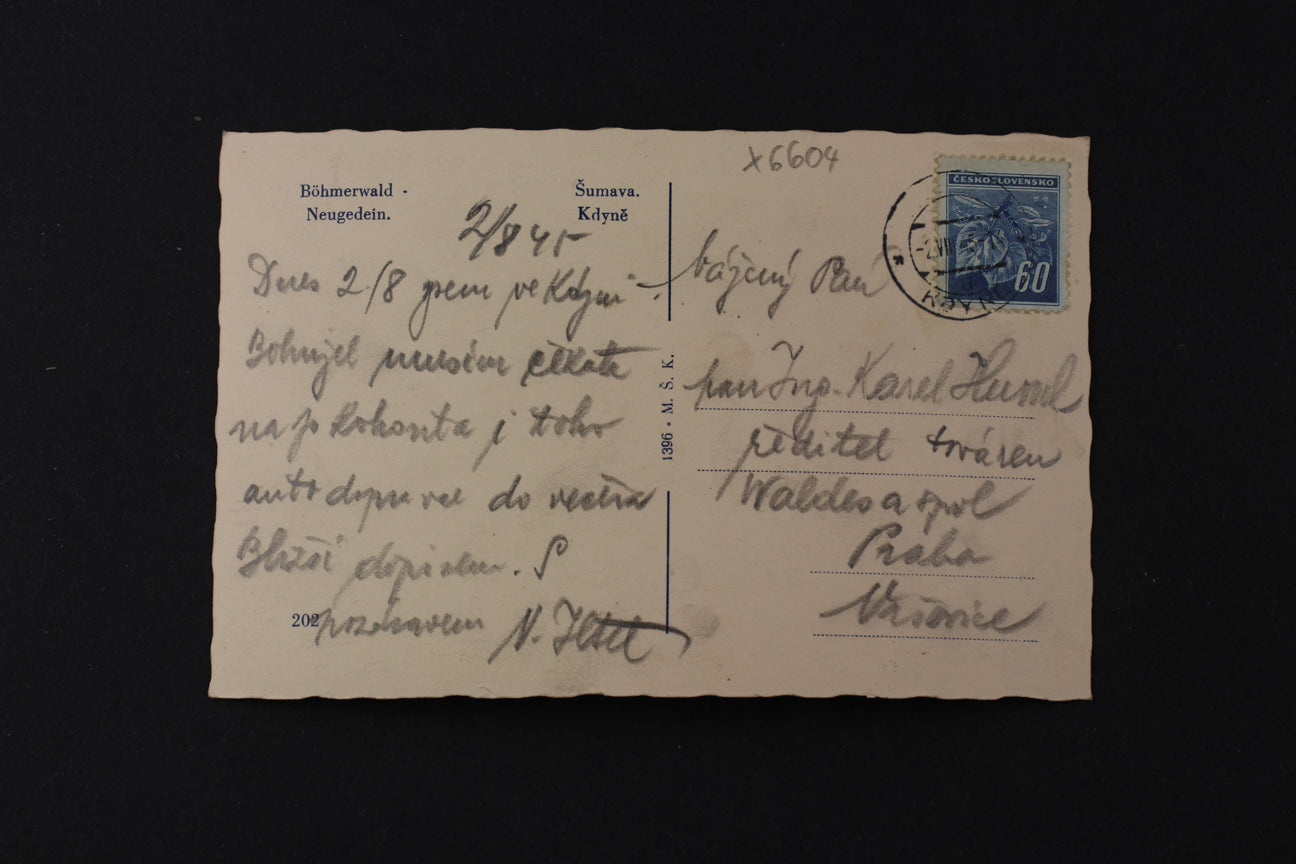 x6604
Böhmerwald - Šumava.
Neugedein. Kdyně
ČESKOSLOVENSKO
60
2/8 45
Dnes 2/8 jsem ve Kdyni
Bohužel musím čekati
na
auto do večera
Bližší dopisem. S
pozdravem
202
1396 - M. Š. K.
Pan
pan Ing. Karel
ředitel továren
Waldes a spol
Praha
Vršovice